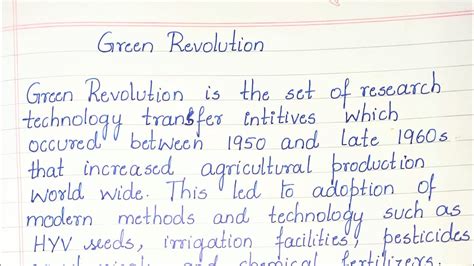 Green Revolution
Green Revolution is the set of research
technology transfer intitives which
occured between 1950 and late 1960s
that increased agricultural production
world wide. This led to adoption of
modern methods and technology such as
HYV seeds, irrigation facilities, pesticides
and chemical fertilizers.